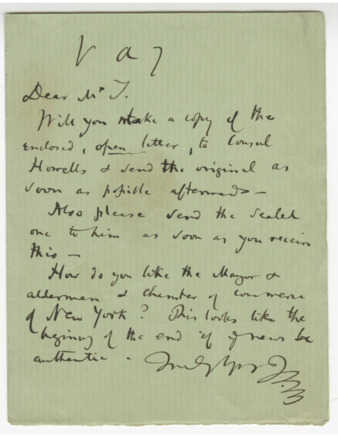 V a 7
Dear Mr T.
Will you make a copy of the
enclosed, open letter, to Consul
Howells & send the original as
soon as possible afterwards –
Also please send the sealed
one to him as soon as you receive
this –
How do you like the Mayor &
aldermen & chamber of commerce
of New York? This looks like the
begining of the end if ye news be
authentic.